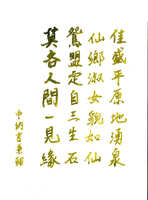 佳盛平原地湧泉
仙鄉淑女貌如仙
鴛盟定自三生石
莫各人間一見緣